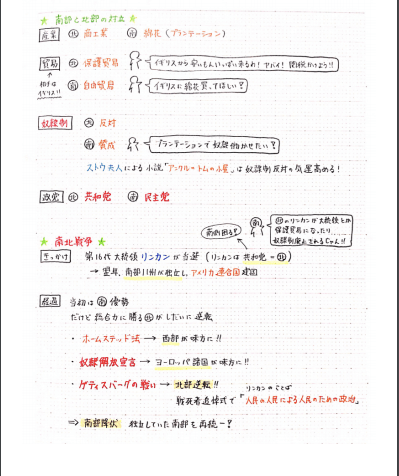 ★ 南部と北部の対立 ★
産業 北 商工業 南 綿花(プランテーション)
貿易 北 保護貿易 イギリスから安いもんいっぱい来るわ!ヤバイ!関税かけよう!!
↑
相手は
イギリス!!
南 自由貿易 イギリスに綿花買ってほしい?
奴隷制 北 反対
南 賛成 プランテーションで奴隷働かせたい?
ストウ夫人による小説「アンクル=トムの小屋」は奴隷制反対の気運高める!
政党 北 共和党 南 民主党
★ 南北戦争 ★
南部困る!! 南
北のリンカンが大統領とか
保護貿易になったり
奴隷制廃止されるじゃん!!
きっかけ 第16代大統領リンカンが当選(リンカンは共和党=北)
→ 翌年、南部11州が独立し、アメリカ連合国建国
経過 当初は南優勢
だけど総合力に勝る北がしだいに逆転
・ホームステッド法 → 西部が味方に!!
・奴隷解放宣言 → ヨーロッパ諸国が味方に!!
・ゲティスバーグの戦い → 北部逆転!!
リンカンのことば
戦死者追悼式で「人民の人民による人民のための政治」
⇒ 南部降伏 独立していた南部を再統一?